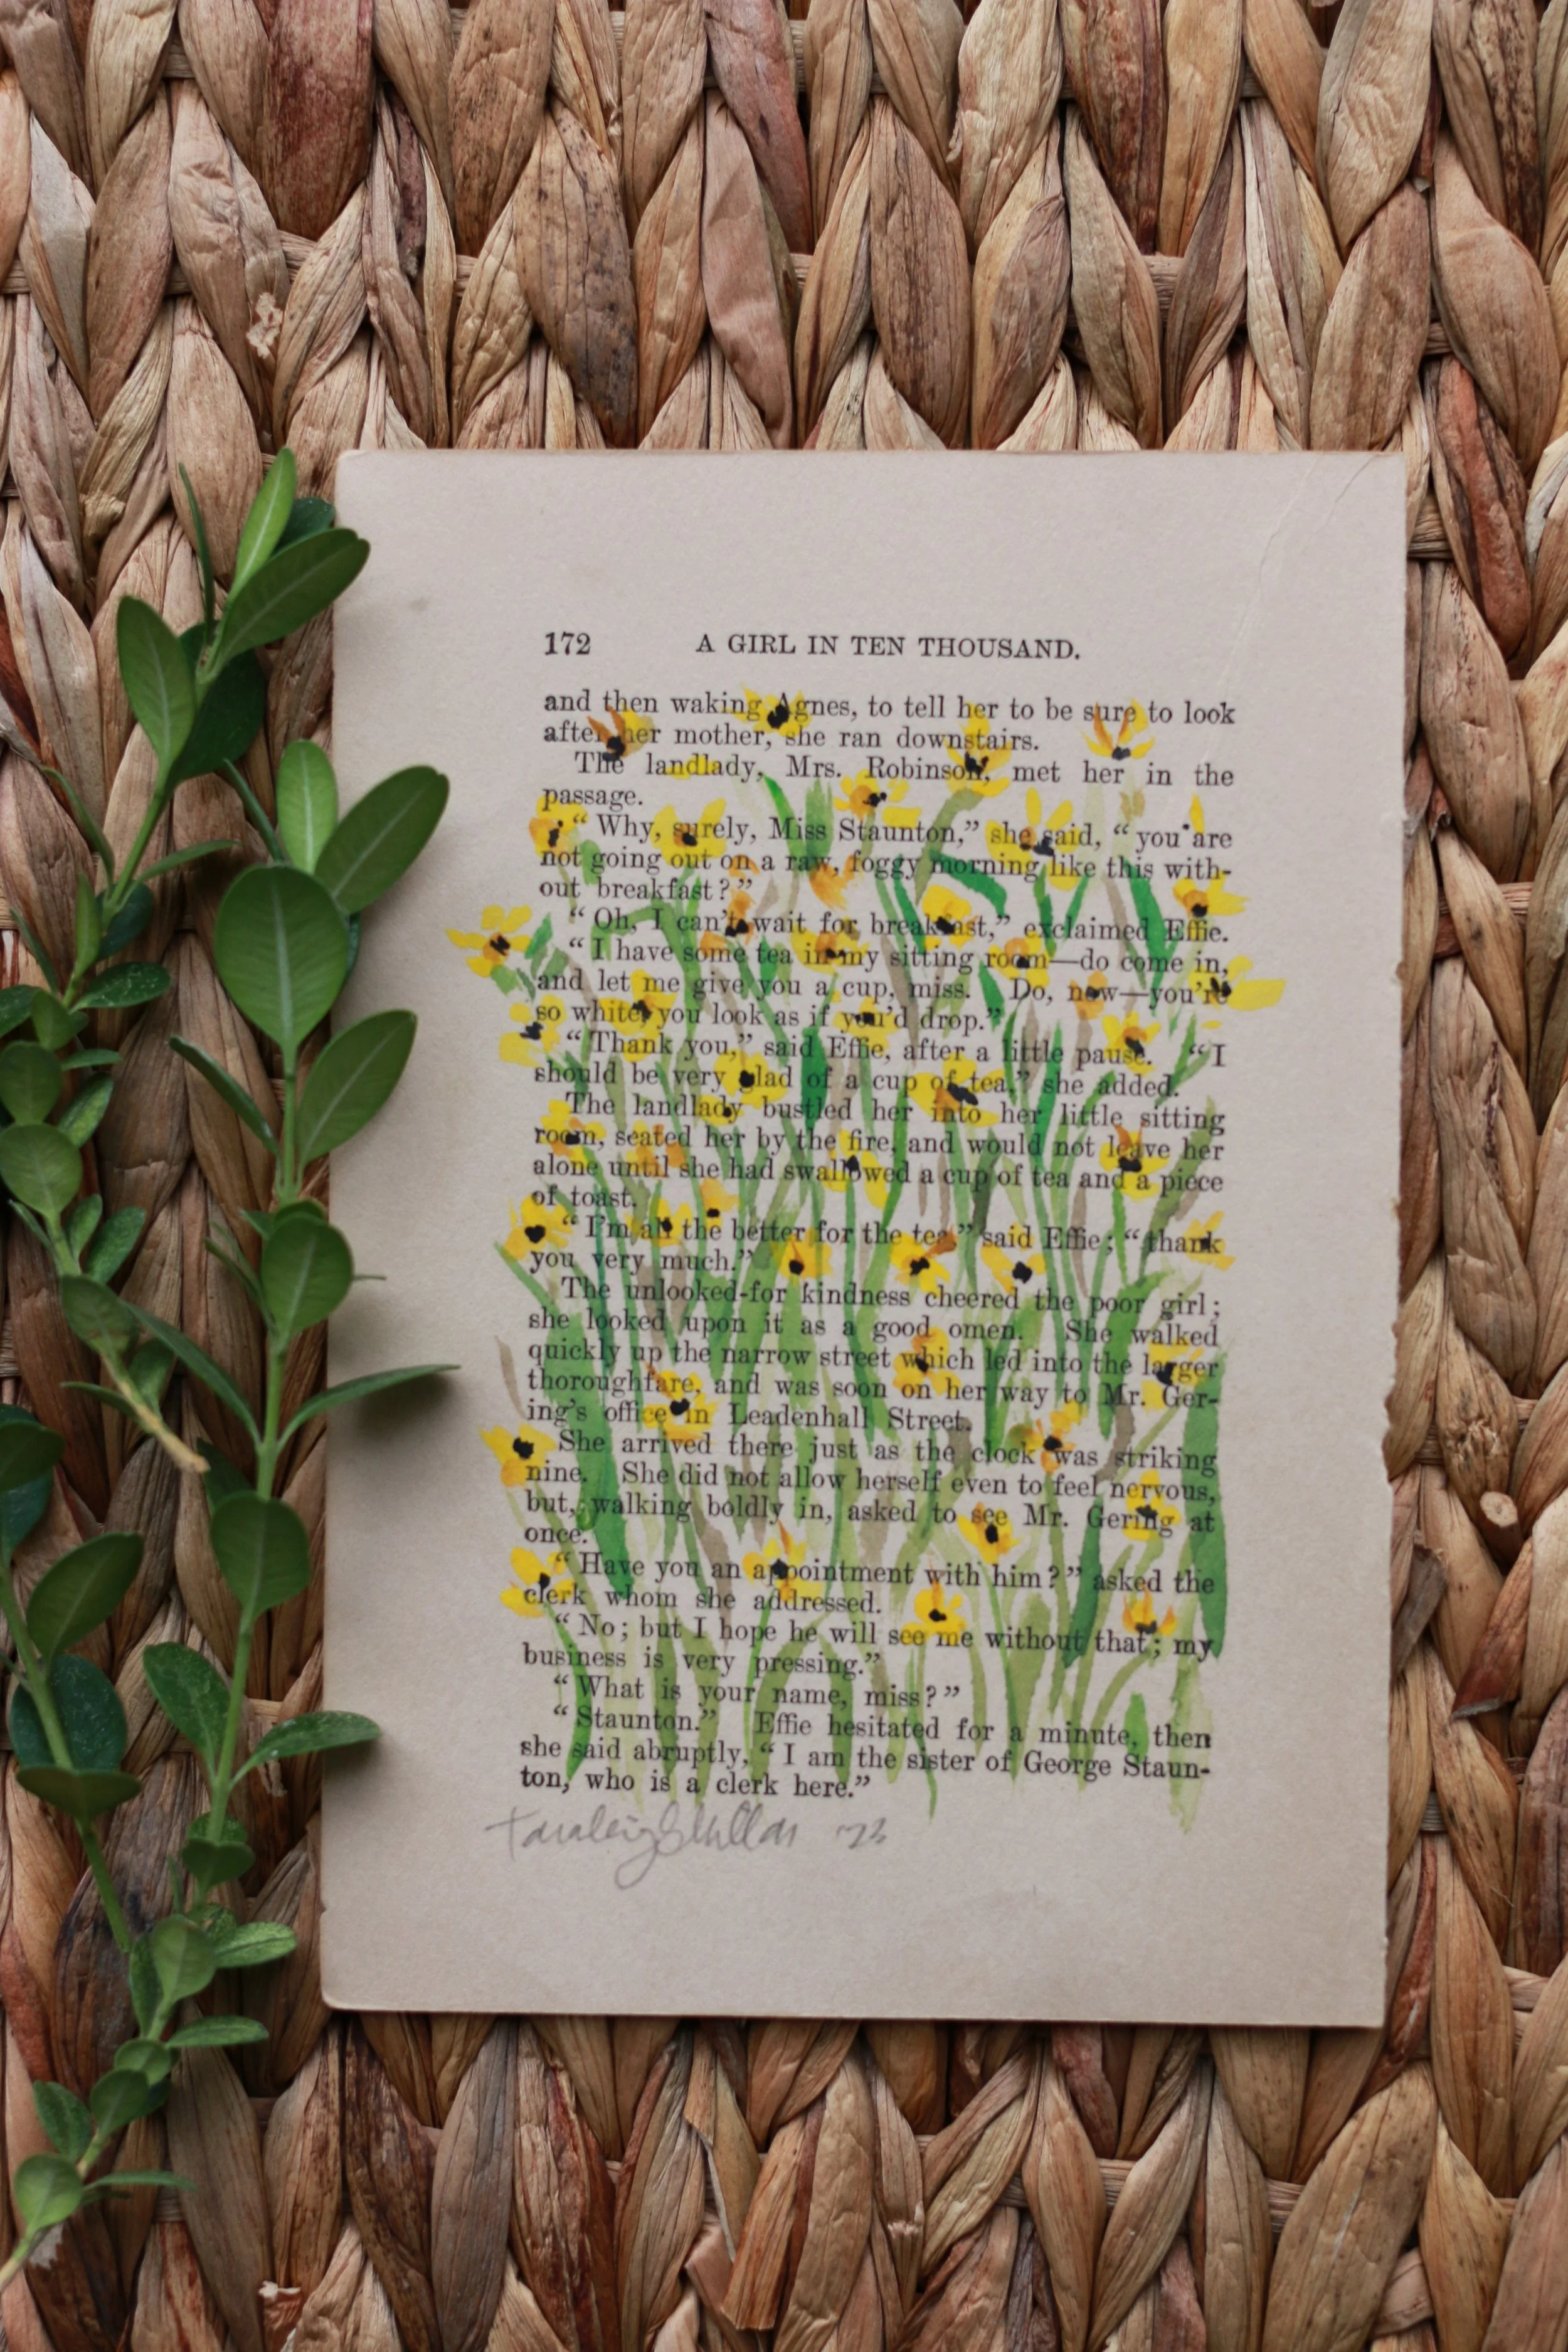 172 A GIRL IN TEN THOUSAND.
and then waking Agnes, to tell her to be sure to look
after her mother, she ran downstairs.
The landlady, Mrs. Robinson, met her in the
passage.
“ Why, surely, Miss Staunton,” she said, “ you are
not going out on a raw, foggy morning like this with-
out breakfast ? ”
“ Oh, I can’t wait for breakfast,” exclaimed Effie.
“ I have some tea in my sitting room—do come in,
and let me give you a cup, miss. Do, now—you’re
so white, you look as if you’d drop.”
“ Thank you,” said Effie, after a little pause. “ I
should be very glad of a cup of tea,” she added.
The landlady bustled her into her little sitting
room, seated her by the fire, and would not leave her
alone until she had swallowed a cup of tea and a piece
of toast.
“ I’m all the better for the tea,” said Effie ; “ thank
you very much.”
The unlooked-for kindness cheered the poor girl ;
she looked upon it as a good omen. She walked
quickly up the narrow street which led into the larger
thoroughfare, and was soon on her way to Mr. Ger-
ing’s office in Leadenhall Street.
She arrived there just as the clock was striking
nine. She did not allow herself even to feel nervous,
but, walking boldly in, asked to see Mr. Gering at
once.
“ Have you an appointment with him ? ” asked the
clerk whom she addressed.
“ No ; but I hope he will see me without that ; my
business is very pressing.”
“ What is your name, miss ? ”
“ Staunton.” Effie hesitated for a minute, then
she said abruptly, “ I am the sister of George Staun-
ton, who is a clerk here.”